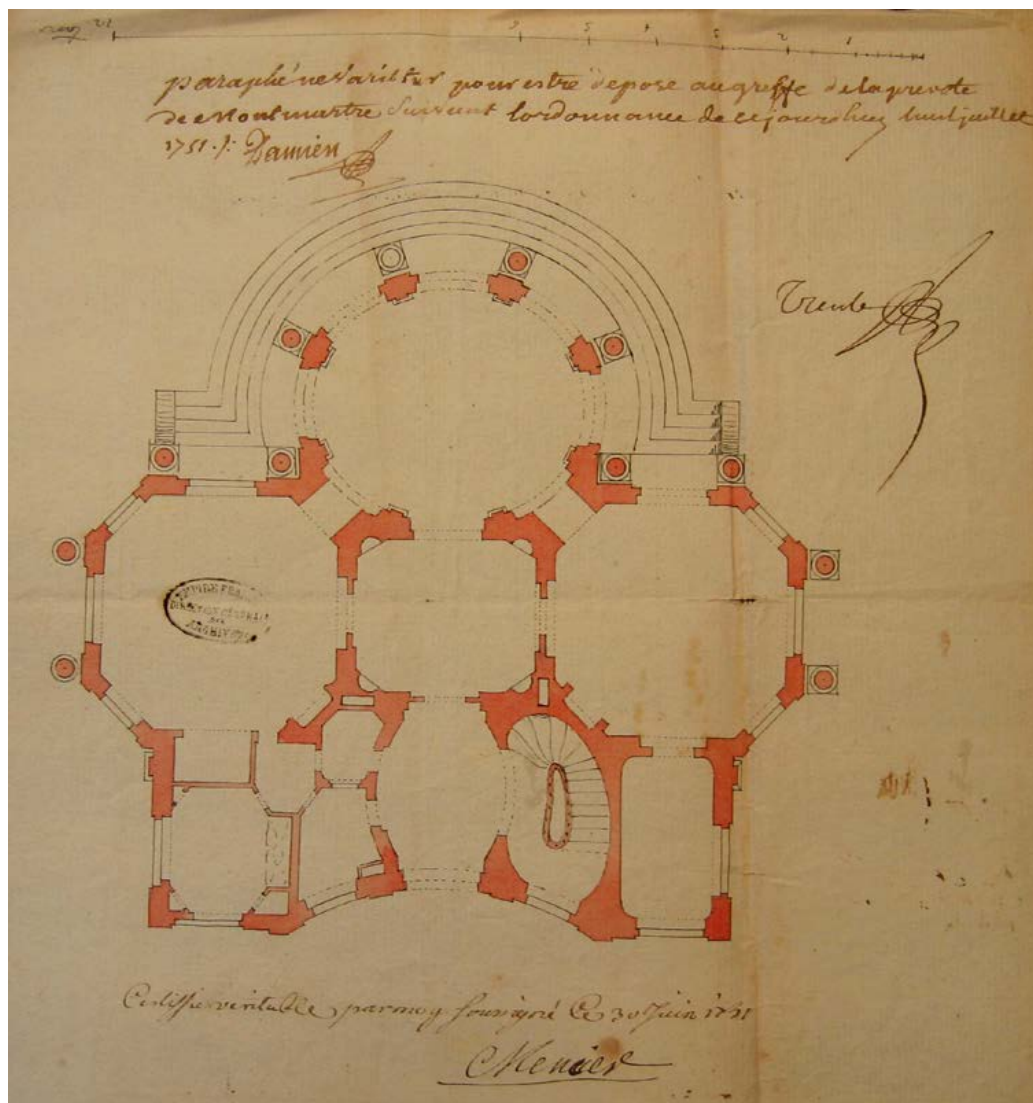 12 6 5 4 3 2 1
paraphé ne varietur pour estre deposé au greffe de la prevoté
de Montmartre suivant lordonnance de cejourdhuy huit juillet
1751 /: Damien
EMPIRE FRAN
DIRECTION GÉNÉRALE
DES
ARCHIVES
Certiffie veritable par moy soussigné Ce 30 Juin 1751